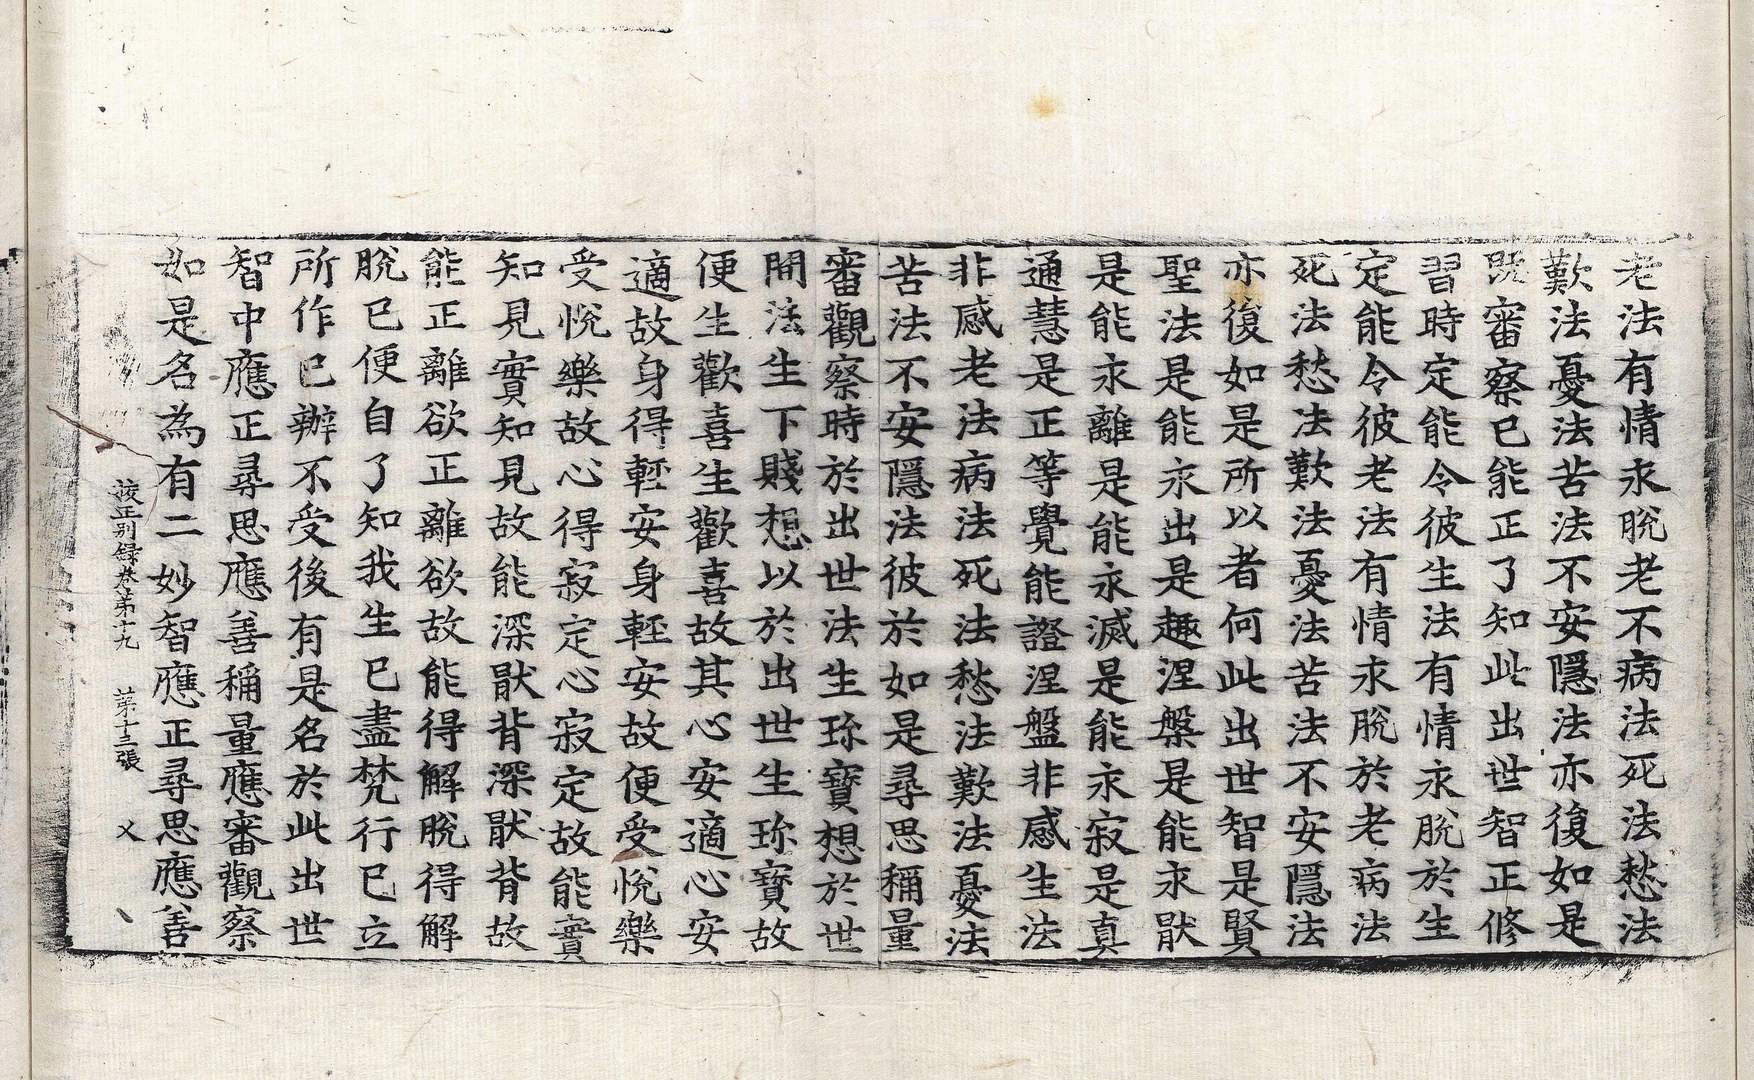 老法有情永脫老不病法死法愁法
歎法憂法苦法不安隱法亦復如是
旣審察已能正了知此出世智正修
習時定能令彼生法有情永脫於生
定能令彼老法有情永脫於老病法
死法愁法歎法憂法苦法不安隱法
亦復如是所以者何此出世智是賢
聖法是能永出是趣涅槃是能永猒
是能永離是能永滅是能永寂是真
通慧是正等覺能證涅盤非感生法
非感老法病法死法愁法歎法憂法
苦法不安隱法彼於如是尋思稱量
審觀察時於出世法生珎寶想於世
間法生下賤想以於出世生珎寶故
便生歡喜生歡喜故其心安適心安
適故身得輕安身輕安故便受悅樂
受悅樂故心得寂定心寂定故能實
知見實知見故能深猒背深猒背故
能正離欲正離欲故能得解脫得解
脫已便自了知我生已盡梵行已立
所作已辦不受後有是名於此出世
智中應正尋思應善稱量應審觀察
如是名為有二妙智應正尋思應善
挍正別録卷苐十九 苐十三張 乂